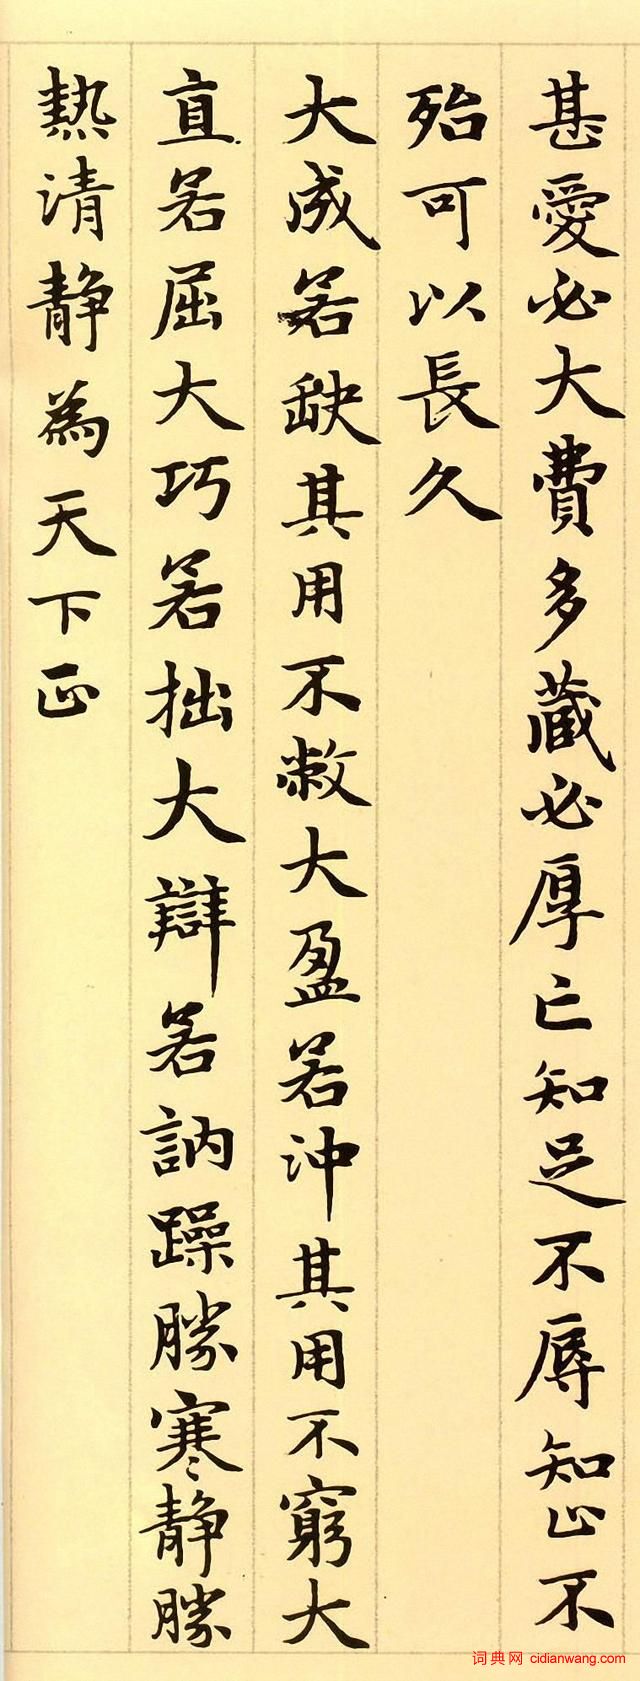 甚愛必大費多藏必厚亡知足不辱知止不
殆可以長久
大成若缺其用不敝大盈若沖其用不窮大
直若屈大巧若拙大辯若訥躁勝寒靜勝
熱清靜為天下正
词典网 cidianwang.com